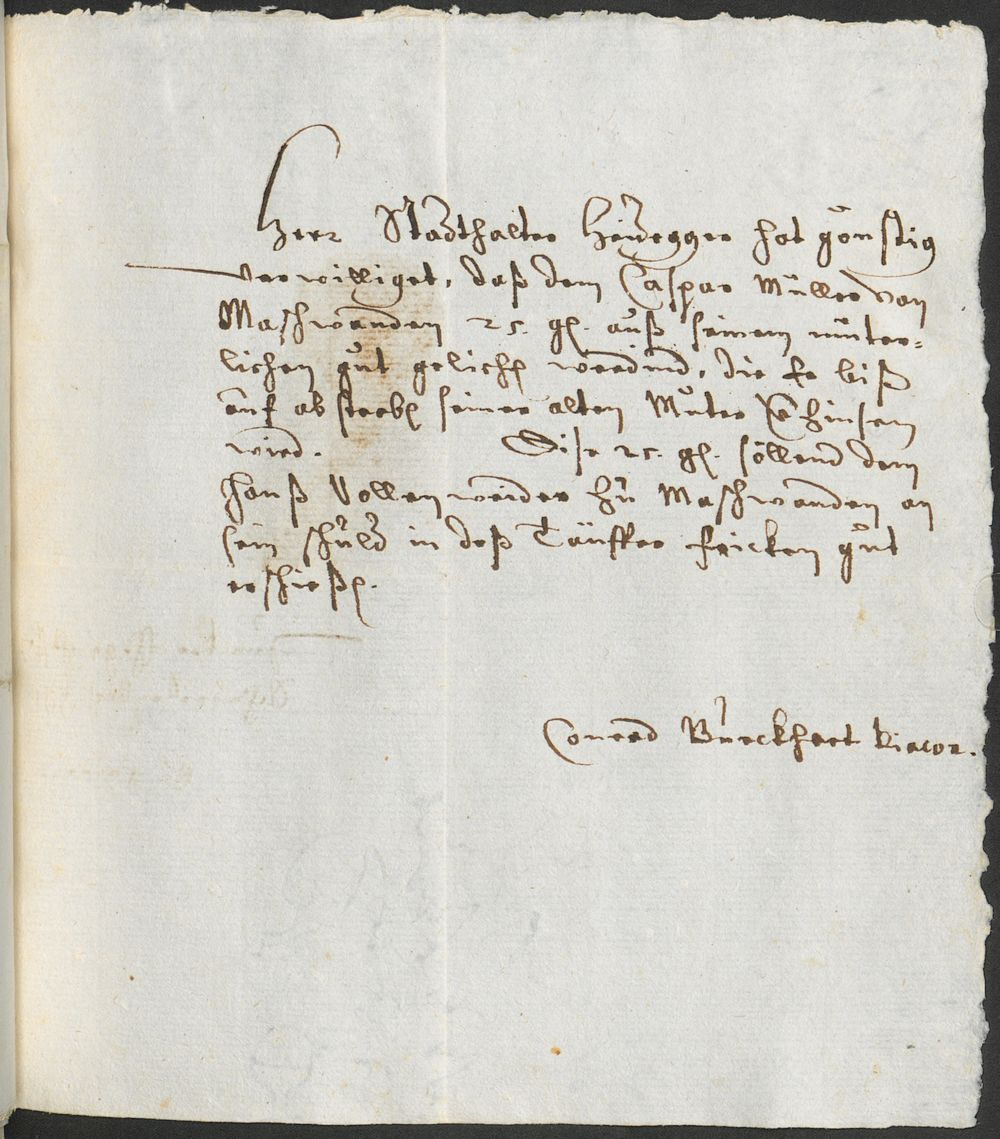 Herr Statthalter Heidegger hat günstig
verwilliget, daß dem Caspar Müller von
Maschwanden 25. gl. auß seinem müter-
lichen gut gelichē werdind, die er biß
auf absterbē seiner alten Muter verzinsen
wird. Dise 25. gl. söllend dem
Hanß Vollenweider zu Maschwanden an
sein schuld in deß Täuffer Fricken gut
erschießē.
Conrad Burckhart